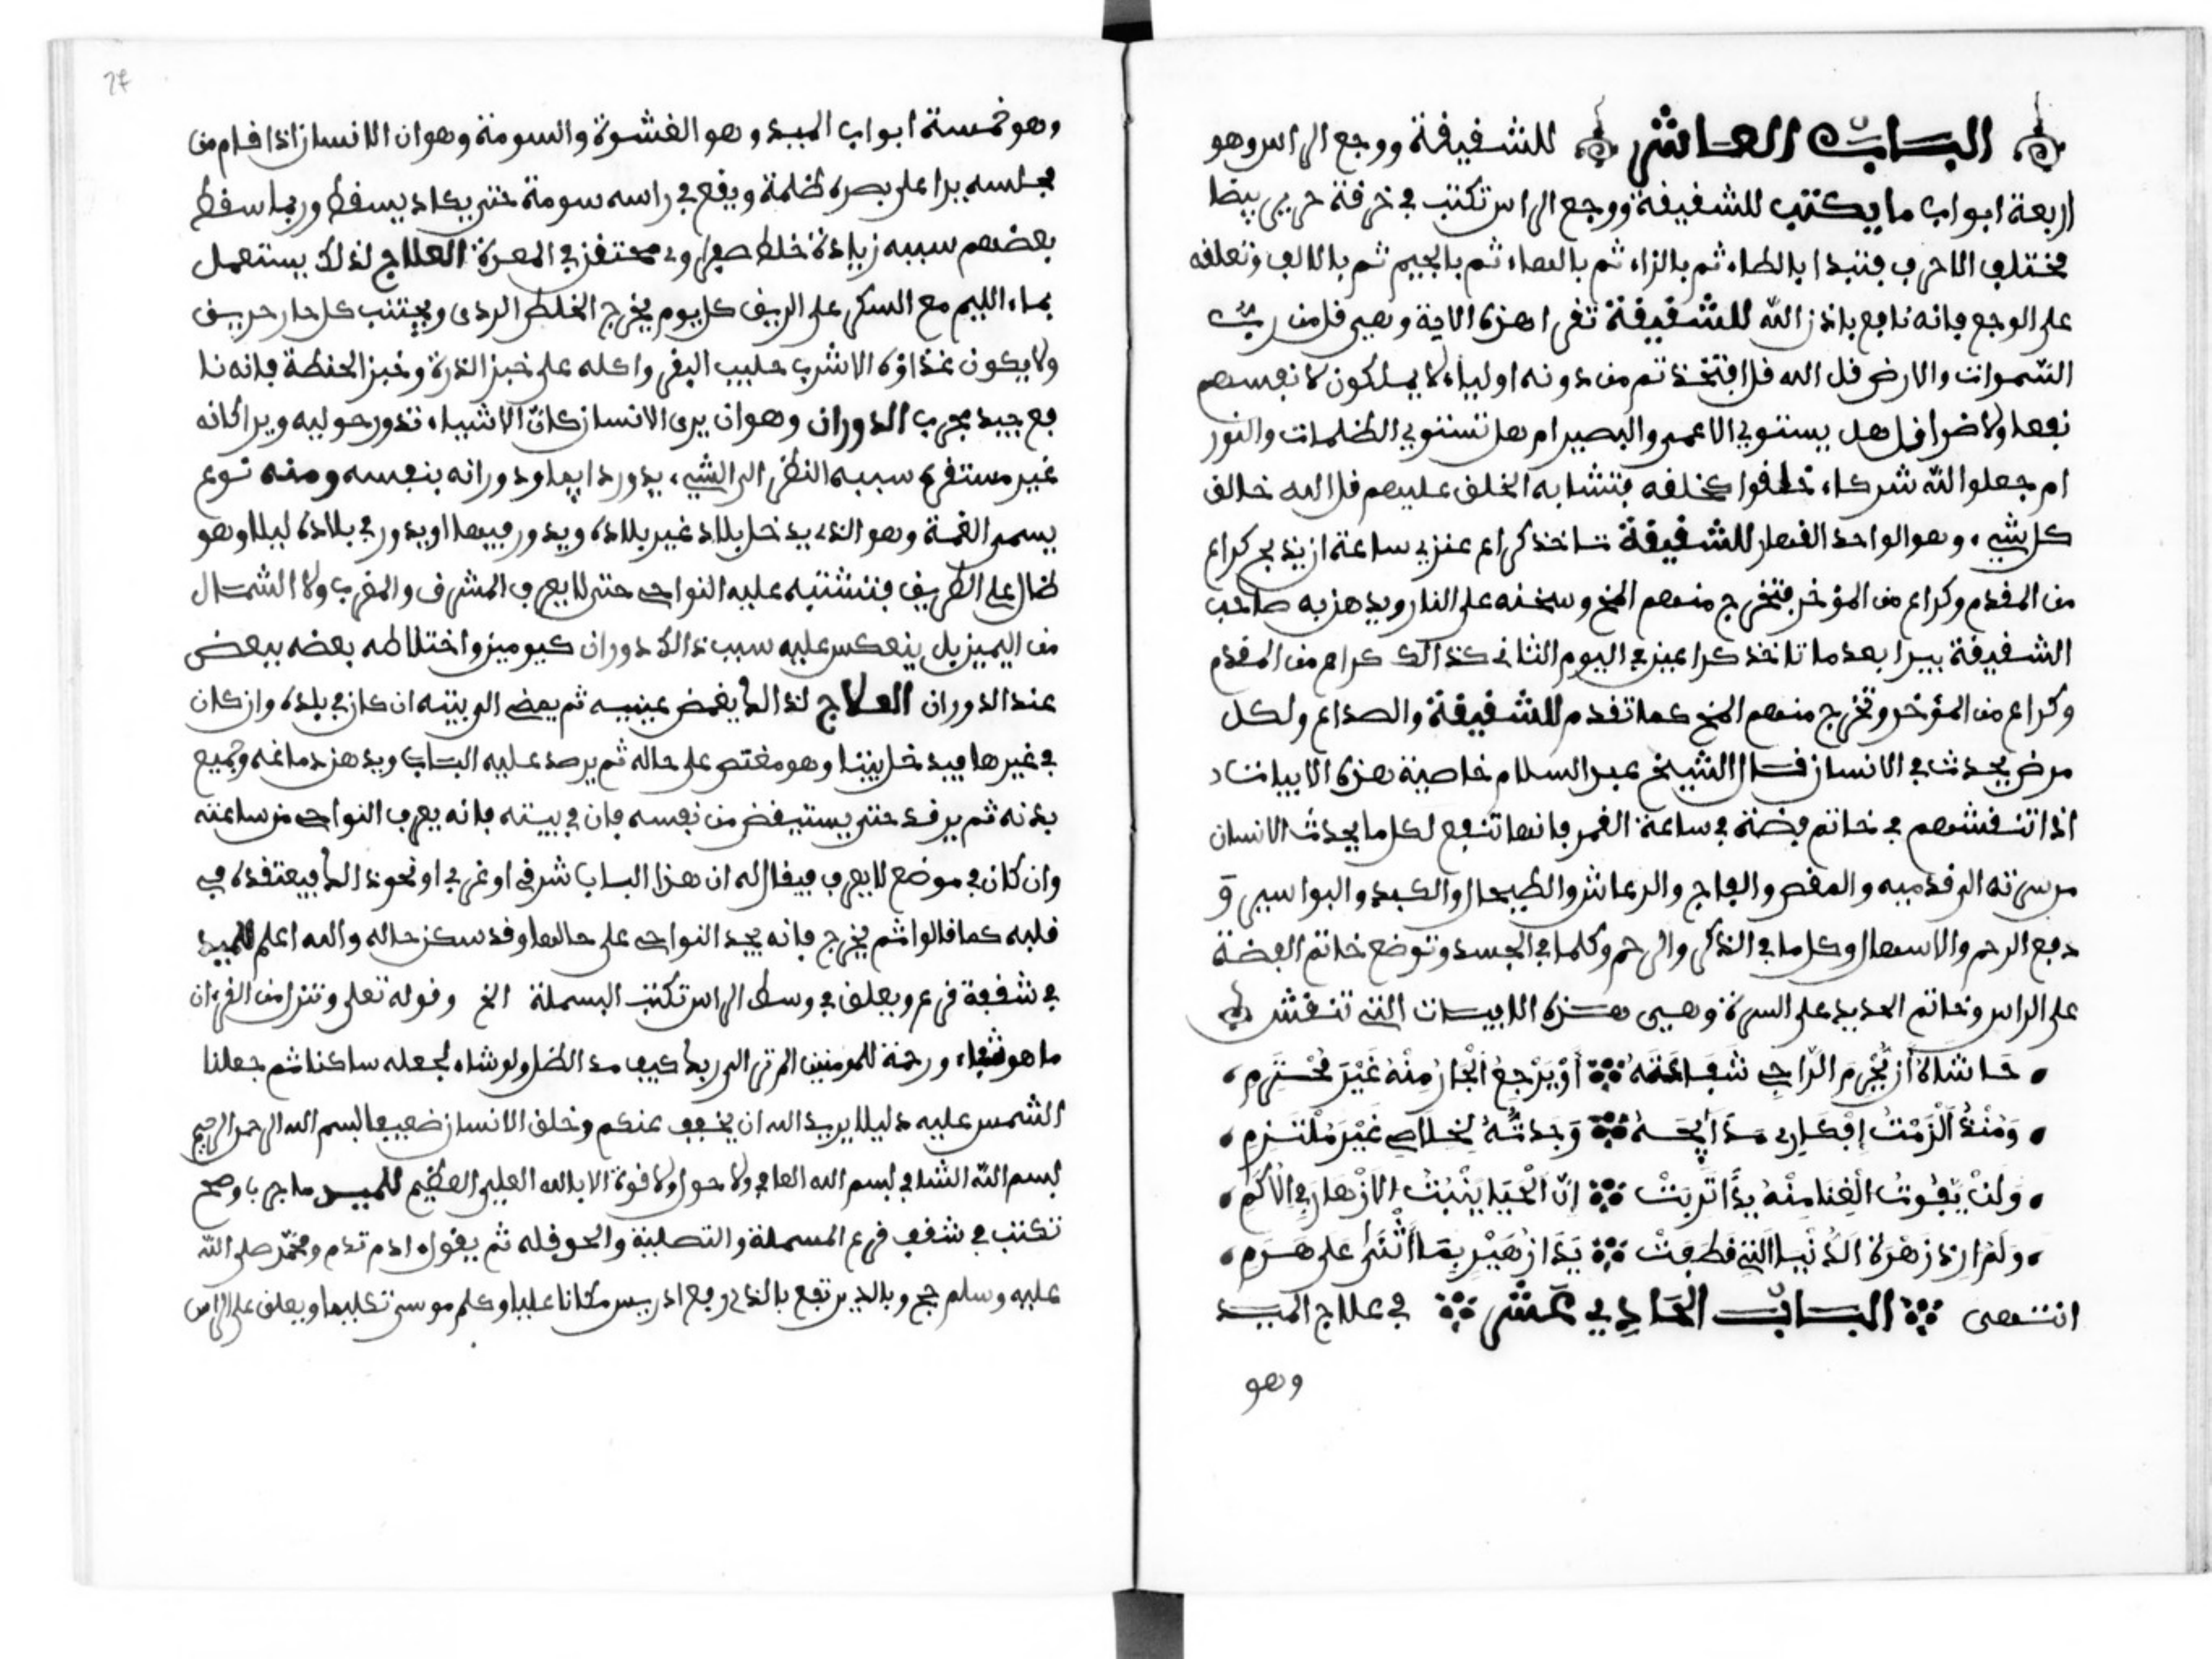 الباب العاشر للشفيفة ووجع الراس وهو
اربعة ابواب ما يكتب للشفيفة ووجع الراس تكتب في خرفة حرير بيضا
مختلف الاحرف فتبدا بالطاء ثم بالزاء ثم بالهاء ثم بالجيم ثم بالالف وتعلفه
على الوجع فانه نافع باذن الله للشفيفة تفرا هذه الاية وهي فل من رب
السموات والارض فل الله فل افتخذتم من دونه اولياء لا يملكون لانفسهم
نفعا ولا ضرا فل هل يستوي الاعمى والبصير ام هل تستوي الظلمات والنور
ام جعلوا لله شركاء خلفوا كخلفه فتشابه الخلف عليهم فل الله خالف
كل شيء وهو الواحد الفهار للشفيفة تاخذ كراع عنزي ساعة ان يذبح كراع
من المفدم وكراع من المؤخر فتخرج منهم المخ وسخنه على النار ويدهن به صاحب
الشفيفة يبرا بعد ما تاخذ كراعين في اليوم الثاني كذالك كراع من المفدم
وكراع من المؤخر وتخرج منهم المخ كما تفدم للشفيفة والصداع ولكل
مرض يحدث في الانسان فال الشيخ عبد السلام خاصية هذه الابيات
اذا تنفشهم في خاتم فضة في ساعة الفمر فانها تنفع لكل ما يحدث الانسان
من سرته الى فدميه والمغص والفاج والرعاش والطيحال والكبد والبواسير و
دفع الرحم والاسهال وكل ما في الذكر والرحم وكلما في الجسد وتوضع خاتم الفضة
على الراس وخاتم الحديد على السرة وهي هذه الابيات التي تنفش
حَاشَاهُ أَنْ يُحْرِمَ الرَّاجِي شَفَاعَتَهُ أَوْ يَرْجِعَ الْجَارُ مِنْهُ غَيْرَ مُحْتَرِمِ
وَمُنْذُ أَلْزَمْتُ أَفْكَارِي مَدَائِحَهُ وَجَدتُّهُ لِخَلَاصِي غَيْرَ مُلْتَزِمِ
وَلَنْ يَفُوتَ الْغِنَا مِنْهُ يَدًا تَرِبَتْ اِنَّ الْحَيَا يَنْبُتُ الْاَزْهَارَ فِي الْاَكَمِ
وَلَمْ ارِدْ زَهْرَةَ الدُّنْيَا الَّتِي فطَفَتْ يَدَا زُهَيْرٍ بِمَا أَثْنَى عَلى هَرَمِ
انتهى الباب الحادي عشر في علاج الميد
وهو
24
وهو خمسة ابواب الميد وهو الغشوة والسومة وهو ان الانسان اذا فام من
مجلسه يرا على بصره ظلمة ويفع في راسه سومة حتى يكاد يسفط وربما سفط
بعضهم سببه زيادة خلط صفراوي محتفز في المعدة العلاج لذلك يستعمل
بماء الليم مع السكر على الريف كل يوم يخرج الخلط الردى ويجتنب كل حار حريف
ولا يكون غذاؤه الا شرب حليب البفر واكله على خبز الذرة وخبز الحنطة فانه نا
فع جيد مجرب الدوران وهو ان يرى الانسان كان الاشياء تدور حوليه ويراكانه
غير مستفر سببه النظر الى الشيء يدور دايما ودورانه بنفسه ومنه نوع
يسمى الغمة وهو الذي يدخل بلاد غير بلاده ويدور فيها او يدور في بلاده ليلا وهو
ضال على الطريف فتشتبه عليه النواحي حتى لا يعرف المشرف والمغرب ولا الشمال
من اليمين بل ينعكس عليه سبب ذالك دوران كيوميز واختلاطه بعضه ببعض
عند الدوران العلاج لذالك يغمض عينيه ثم يمضي الى بيته ان كان في بلده وان كان
في غيرها فيدخل بيتا وهو مغتص على حاله ثم يرصد عليه الباب ويدهن دماغه وجميع
بدنه ثم يرفد حتى يستيفض من نفسه فان في بيته فانه يعرف النواحي من ساعته
وان كان في موضع لا يعرف فيفال له ان هذا الباب شرفي او غربي او نحو ذالك فيعتفده في
فلبه كما فالوا ثم يخرج فانه يجد النواحي على حالها وفد سكن حاله والله اعلم للميد
في شففة فرع ويعلف في وسط الراس تكتب البسملة الخ وفوله تعلى وننزل من الفرءان
ما هو شفاء ورحمة للمومنين الم تر الى ربك كيف مد الظل ولو شاء لجعله ساكنا ثم جعلنا
الشمس عليه دليلا يريد الله ان يخفف عنكم وخلف الانسان ضعيفا بسم الله الرحمن الرحيم
بسم الله الشافي بسم الله العافي ولا حول ولا فوة الا بالله العلي العظيم للميد ما جرب وصح
تكتب في شفف فرع المسملة والتصلية والحوفله ثم يفول ادم تدم ومحمد صلى الله
عليه وسلم حج وبالدير تفع بالذي رفع ادريس مكانا عليا وكلم موسى تكليما ويعلف على الراس